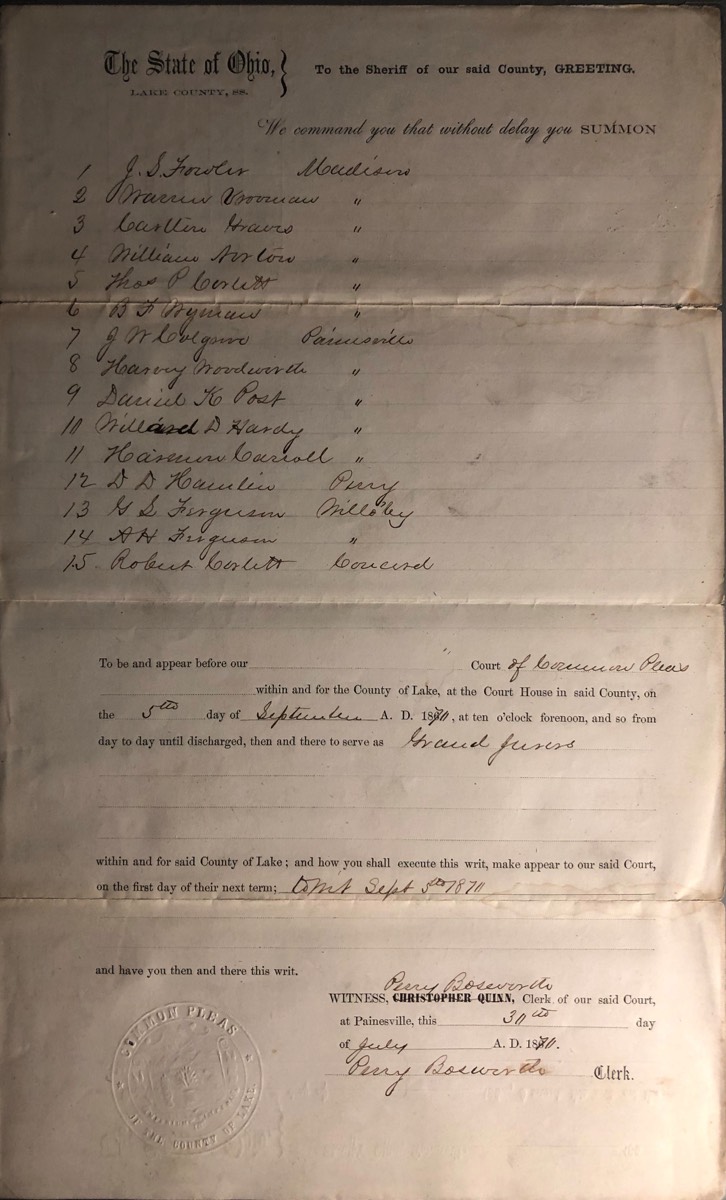 The State of Ohio, } To the Sheriff of our said County, GREETING.
LAKE COUNTY, SS.
We command you that without delay you SUMMON
1 J. S. Fowler Madison
2 Warren Vrooman "
3 Carlton Graves "
4 William Norton "
5 Thos P Corlett "
6 B F Wyman "
7 J W Colgrove Painesville
8 Harvey Woodworth "
9 Daniel K Post "
10 Willard D Hardy "
11 Harmon Carroll "
12 D D Hamlin Perry
13 G S Ferguson Willo'by
14 A H Ferguson "
15 Robert Corlett Concord
To be and appear before our Court of Common Pleas
within and for the County of Lake, at the Court House in said County, on
the 5th day of September A. D. 1870, at ten o'clock forenoon, and so from
day to day until discharged, then and there to serve as Grand Jurors
within and for said County of Lake; and how you shall execute this writ, make appear to our said Court,
on the first day of their next term; towit Sept 5th 1870
and have you then and there this writ.
Perry Bosworth
WITNESS, CHRISTOPHER QUINN, Clerk of our said Court,
at Painesville, this 30th day
of July A. D. 1870.
Perry Bosworth Clerk.
COMMON PLEAS
OF THE COUNTY OF LAKE